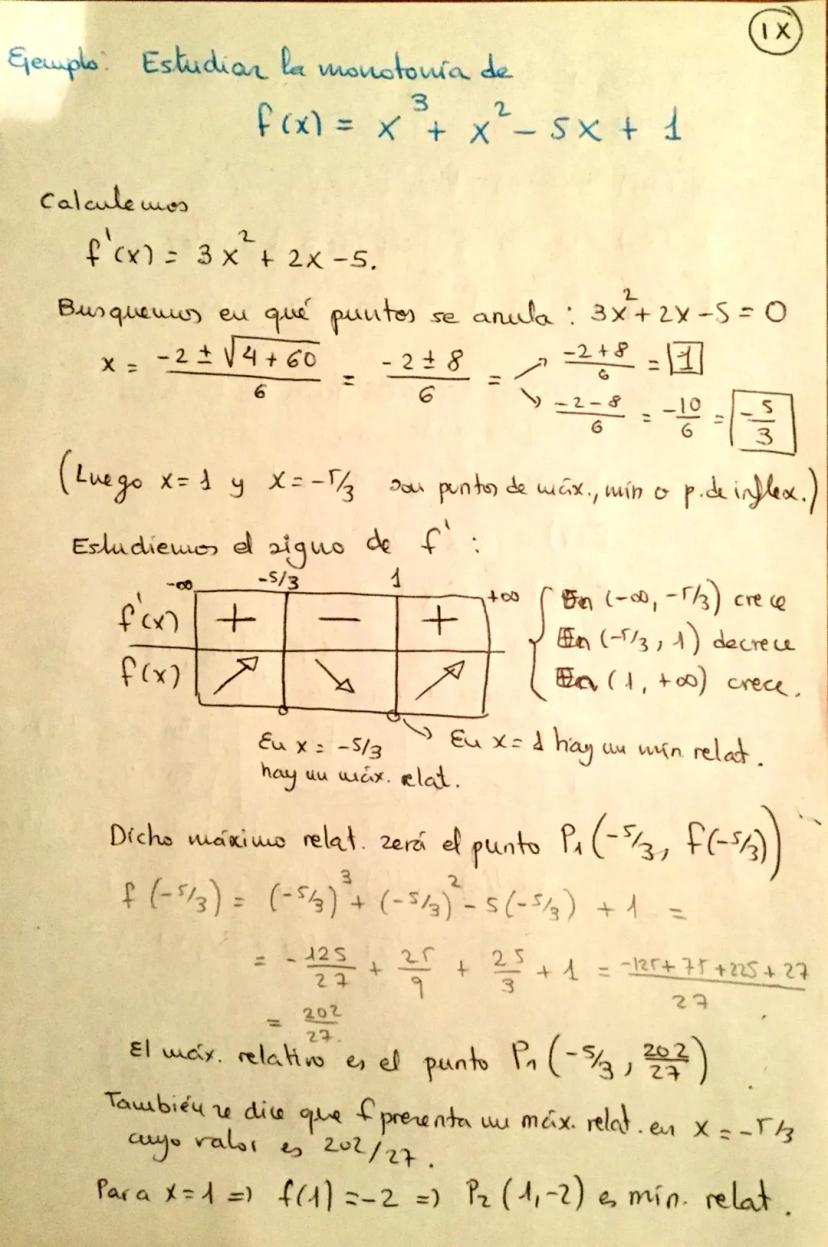 IX
Ejemplo: Estudiar la monotonía de
f(x) = x³ + x² - 5x + 1
Calculemos
f'(x) = 3x² + 2x - 5.
Busquemos en qué puntos se anula: 3x² + 2x - 5 = 0
x = (-2 ± √(4 + 60))/6 = (-2 ± 8)/6 = ↗ (-2+8)/6 = 1
↘ (-2-8)/6 = -10/6 = -5/3
(Luego x = 1 y x = -5/3 son puntos de máx., mín o p. de inflex.)
Estudiemos el signo de f':
-∞ -5/3 1 +∞
f'(x) + − +
f(x) ↗ ↘ ↗
{ En (-∞, -5/3) crece
En (-5/3, 1) decrece
En (1, +∞) crece.
En x = -5/3
hay un máx. relat.
↘ En x = 1 hay un mín relat.
Dicho máximo relat. será el punto P₁(-5/3, f(-5/3))
f(-5/3) = (-5/3)³ + (-5/3)² - 5(-5/3) + 1 =
= -125/27 + 25/9 + 25/3 + 1 = (-125 + 75 + 225 + 27)/27
= 202/27.
El máx. relativo es el punto P₁(-5/3, 202/27)
También se dice que f presenta un máx. relat. en x = -5/3
cuyo valor es 202/27.
Para x = 1 => f(1) = -2 => P₂(1,-2) es mín. relat.